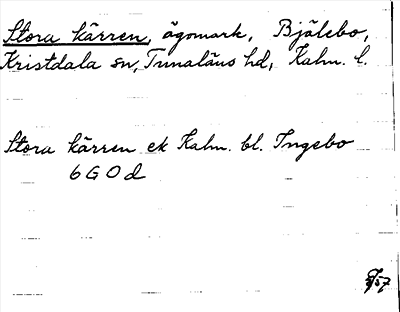 Stora kärren, ägomark, Bjälebo,
Kristdala sn, Tunaläns hd, Kalm. l.
Stora kärren ek Kalm. bl. Ingebo
6 G 0 d